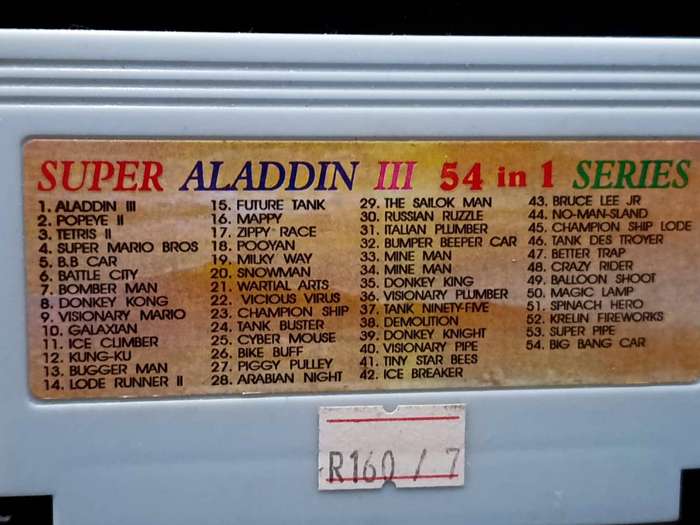 SUPER ALADDIN III 54 in 1 SERIES
1. ALADDIN III
2. POPEYE II
3. TETRIS II
4. SUPER MARIO BROS
5. B.B CAR
6. BATTLE CITY
7. BOMBER MAN
8. DONKEY KONG
9. VISIONARY MARIO
10. GALAXIAN
11. ICE CLIMBER
12. KUNG-KU
13. BUGGER MAN
14. LODE RUNNER II
15. FUTURE TANK
16. MAPPY
17. ZIPPY RACE
18. POOYAN
19. MILKY WAY
20. SNOWMAN
21. WARTIAL ARTS
22. VICIOUS VIRUS
23. CHAMPION SHIP
24. TANK BUSTER
25. CYBER MOUSE
26. BIKE BUFF
27. PIGGY PULLEY
28. ARABIAN NIGHT
29. THE SAILOK MAN
30. RUSSIAN RUZZLE
31. ITALIAN PLUMBER
32. BUMPER BEEPER CAR
33. MINE MAN
34. MINE MAN
35. DONKEY KING
36. VISIONARY PLUMBER
37. TANK NINETY-FIVE
38. DEMOLITION
39. DONKEY KNIGHT
40. VISIONARY PIPE
41. TINY STAR BEES
42. ICE BREAKER
43. BRUCE LEE JR
44. NO-MAN-SLAND
45. CHAMPION SHIP LODE
46. TANK DES TROYER
47. BETTER TRAP
48. CRAZY RIDER
49. BALLOON SHOOT
50. MAGIC LAMP
51. SPINACH HERO
52. KRELIN FIREWORKS
53. SUPER PIPE
54. BIG BANG CAR
R160 / 7